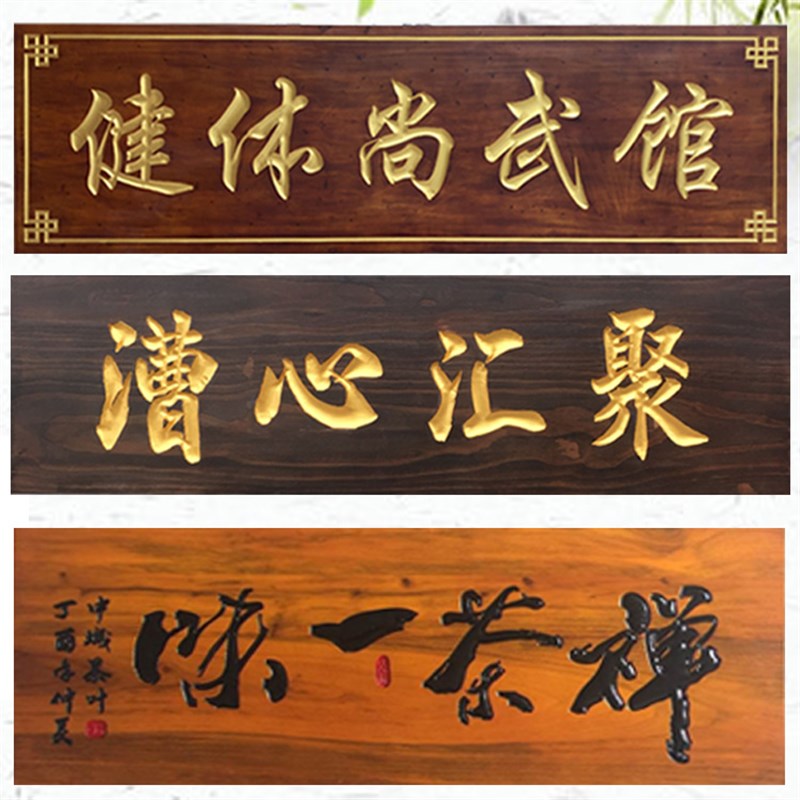 健体尚武馆
漕心汇聚
禅茶一味
茶叶
丁酉年仲夏